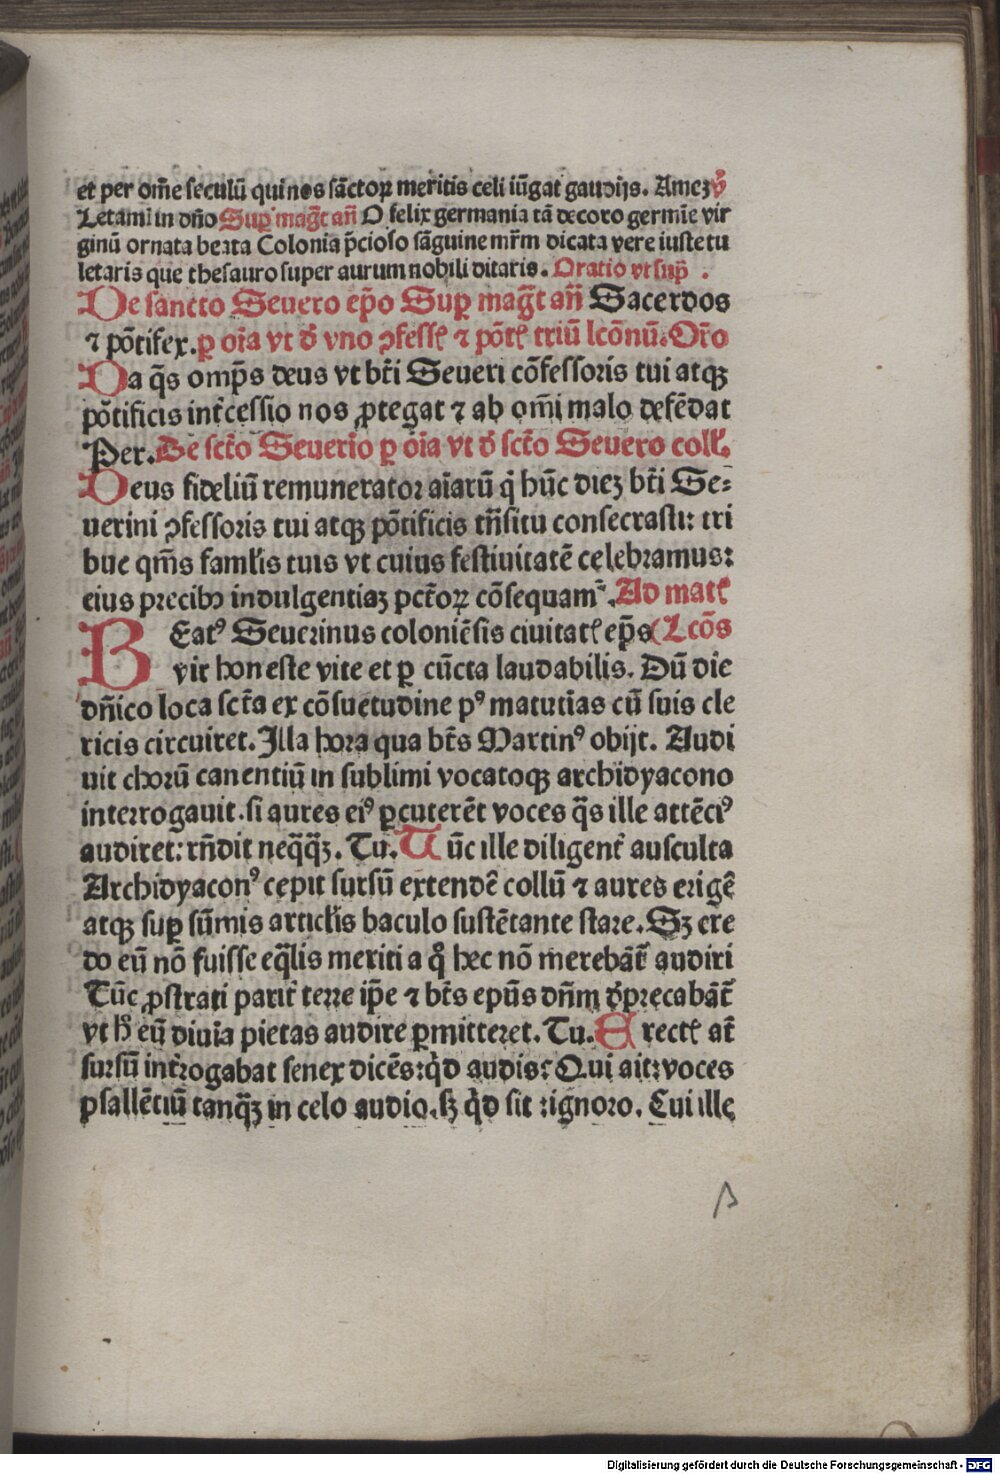 et per om̄e seculū qui nos sāctoꝝ meritis celi iūgat gaudijs. Ameꝫ ꝟ̄
Letamī in dn̄o Suꝑ mag̃t an̄ O felix germania tā decoro germīe vir
ginū ornata beata Colonia p̄cioso sāguine mr̄m dicata vere iuste tu
letaris que thesauro super aurum nobili ditaris. Oratio vt suꝑ .
De sancto Severo ep̄o Suꝑ mag̃t an̄ Sacerdos
⁊ pōtifex. ꝑ oīa vt đ vno ↄfess ⁊ pōt triū lcōnū. Or̄o
Da q̄s omp̄s deus vt bt̄i Seueri cōfessoris tui atqꝫ
pōtificis int̄cessio nos ꝓtegat ⁊ ab om̄i malo defēdat
Per. De sct̄o Severīo ꝑ oīa vt đ sct̄o Severo coll.
Deus fideliū remunerator aīarū q̇ hūc dieꝫ bt̄i Se⸗
uerini ↄfessoris tui atqꝫ pōtificis trn̄situ consecrasti: tri
bue qm̄s faml̄is tuis vt cuius festiuitatē celebramus:
eius precibꝰ indulgentiaꝫ pct̄oꝝ cōsequam᷑. Ad matt
BEatꝰ Seuerinus coloniēsis ciuitat ep̄s (Lcōs
vir honeste vite et ꝑ cūcta laudabilis. Dū die
dn̄ico loca sct̄a ex cōsuetudine pꝰ matutīas cū suis cle
ricis circuiret. Illa hora qua bt̄s Martinꝰ obijt. Audi
uit chorū canentiū in sublimi vocatoqꝫ archidyacono
interrogauit. si aures eiꝰ ꝑcuterēt voces q̄s ille attēcꝰ
audiret: rn̄dit neq̄q̄ꝫ. Tu. Tūc ille diligent᷑ ausculta
Archidyaconꝰ cepit sursū extendē collū ⁊ aures erigē
atqꝫ suꝑ sūmis articl̄is baculo sustētante stare. Sꝫ cre
do eū nō fuisse eq̄lis meriti a q̊ hec nō merebāt᷑ audiri
Tūc ꝓstrati parit᷑ terre ip̄e ⁊ bt̄s epūs dn̄m đprecabāt᷑
vt ħ eū diuīa pietas audire ꝑmitteret. Tu. Erect at᷑
sursū int̄rogabat senex dicēs: q̇d audis? Qui ait: voces
psallētiū tanq̄ꝫ in celo audio. sꝫ q̇d sit: ignoro. Cui ille
Digitalisierung gefördert durch die Deutsche Forschungsgemeinschaft - DFG